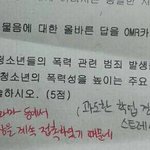 물음에 대한 올바른 답을 OMR카
청소년들의 폭력 관련 범죄 발생
청소년의 폭력성을 높이는 주요
하시오. (5점)
등에서 (과도한 학업
계속 접촉하였기 때문에 스트레